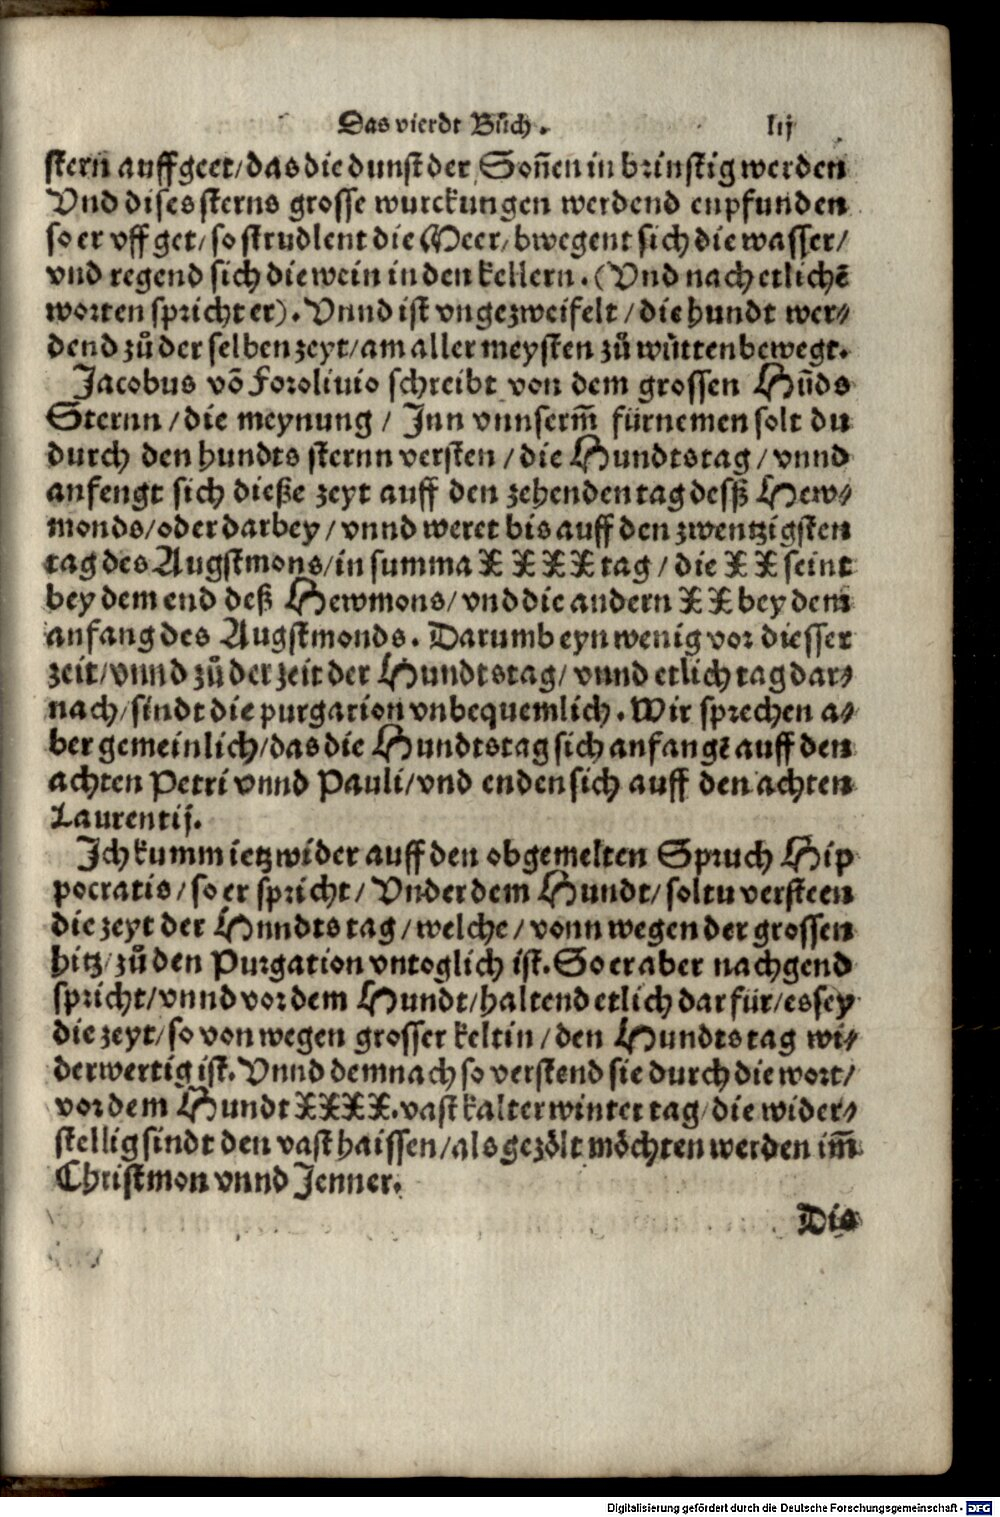 Das vierdt Bůch. lij
stern auffgeet/das die dunst der Soñen in brinstig werden
Vnd dises sterns grosse wurckungen werdend enpfunden
so er vff get/so strudlent die Meer/bwegent sich die wasser/
vnd regend sich die wein in den kellern. (Vnd nach etlichē
worten spricht er). Vnnd ist vngezweifelt/die hundt wer⸗
dend zů der selben zeyt/am aller meysten zů wůtten bewegt.
Jacobus vō Foroliuio schreibt von dem grossen Hūds
Sternn/die meynung/Jnn vnnserm̄ fürnemen solt du
durch den hundts sternn versten/die Hundtstag/vnnd
anfengt sich dieße zeyt auff den zehenden tag desß Hew⸗
monds/oder darbey/vnnd weret bis auff den zwentzigsten
tag des Augstmons/in summa XXXX tag/die XX seint
bey dem end deß Hewmons/vnd die andern XX bey dem
anfang des Augstmonds. Darumb eyn wenig vor diesser
zeit/vnnd zů der zeit der Hundtstag/vnnd etlich tag dar⸗
nach/sindt die purgation vnbequemlich. Wir sprechen a⸗
ber gemeinlich/das die Hundtstag sich anfangt auff den
achten Petri vnnd Pauli/vnd enden sich auff den achten
Laurentij.
Jch kumm ietz wider auff den obgemelten Spruch Hip
pocratis/so er spricht/Vnder dem Hundt/soltu versteen
die zeyt der Hundts tag/welche/vonn wegen der grossen
hitz/zů den Purgation vntoglich ist. So er aber nachgend
spricht/vnnd vor dem Hundt/haltend etlich dar für/es sey
die zeyt/so von wegen grosser keltin/den Hundts tag wi⸗
derwertig ist. Vnnd demnach so verstend sie durch die wort/
vor dem Hundt XXXX. vast kalter winter tag/die wider⸗
stellig sindt den vast haissen/als gezölt möchten werden im̄
Christmon vnnd Jenner.
Die
Digitalisierung gefördert durch die Deutsche Forschungsgemeinschaft - DFG